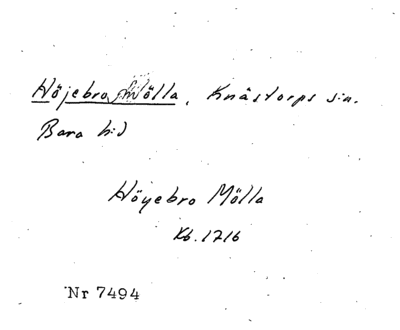 Höjebro Mölla, Knästorps sn.
Bara hd
Höyebro Mölla
Kb. 1716
Nr 7494